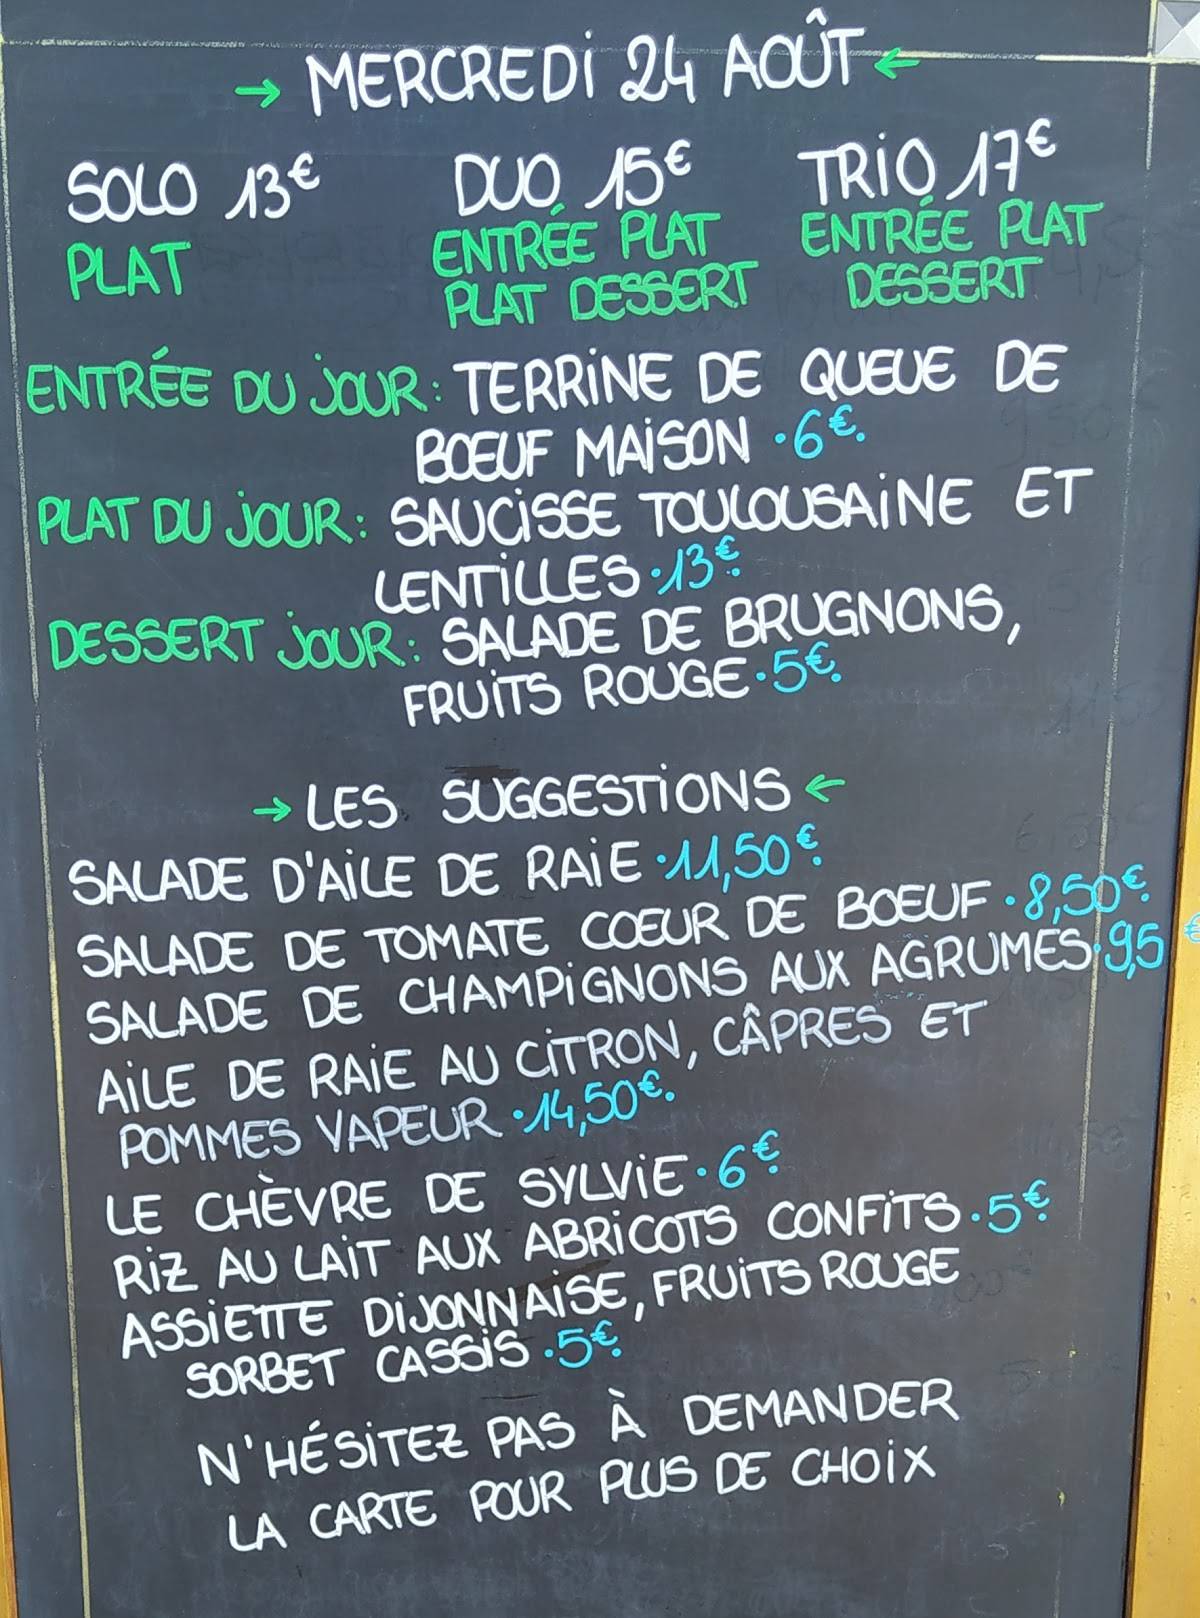 → MERCREDI 24 AOÛT ←
SOLO 13€ DUO 15€ TRIO 17€
PLAT ENTRÉE PLAT ENTRÉE PLAT
PLAT DESSERT DESSERT
ENTRÉE DU JOUR: TERRINE DE QUEUE DE
BŒUF MAISON •6€.
PLAT DU JOUR: SAUCISSE TOULOUSAINE ET
LENTILLES •13€.
DESSERT JOUR: SALADE DE BRUGNONS,
FRUITS ROUGE •5€.
→ LES SUGGESTIONS ←
SALADE D'AILE DE RAIE •11,50€.
SALADE DE TOMATE CŒUR DE BOEUF •8,50€.
SALADE DE CHAMPIGNONS AUX AGRUMES •9,5€
AILE DE RAIE AU CITRON, CÂPRES ET
POMMES VAPEUR •14,50€.
LE CHÈVRE DE SYLVIE •6€.
RIZ AU LAIT AUX ABRICOTS CONFITS •5€.
ASSIETTE DIJONNAISE, FRUITS ROUGE
SORBET CASSIS •5€.
N'HÉSITEZ PAS À DEMANDER
LA CARTE POUR PLUS DE CHOIX